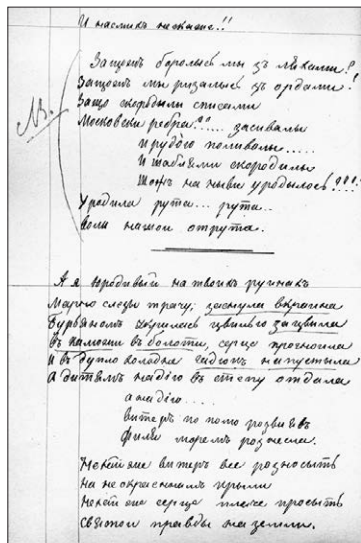 И насликъ не скаже!!
За що жъ боролысь мы зъ ляхамы?
За що жъ мы ризалысь зъ ордамы?
За що скородылы спысамы
Московски ребра??..... засивалы
И рудою полывалы.....
И шаблямы скородылы
Що жъ на ныви уродылось???!
Уродила рута... рута...
Воли нашои отрута.
А я юродывый на твоихъ руинахъ
Марно слезы трачу; заснула Вкраина
Буръяномъ укрылась цвилью зацвила
Въ калюжи въ болоти серце прогноила
И въ дупло холодне гадюкъ напустыла
А дитямъ надію въ степу оддала
а надію....
Витеръ по полю розвіявъ
Филя моремъ рознесла.
Нехай же витеръ все розносыть
На неокраенимъ крыли
Нехай же серце плаче просыть
Святои правды на земли.